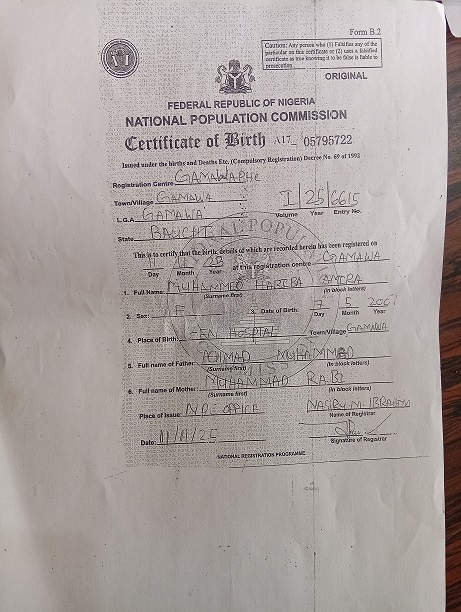 Form B.2
Caution: Any person who (1) Falsifies any of the
particular on this certificate or (2) uses a falsified
certificate as true knowing it to be false is liable to
prosecution
ORIGINAL
FEDERAL REPUBLIC OF NIGERIA
NATIONAL POPULATION COMMISSION
Certificate of Birth A17 05795722
Issued under the births and Deaths Etc, (Compulsory Registration) Decree No. 69 of 1992
Registration Centre GAMAWA PHC
Town/Village GAMAWA I 25 6615
L.G.A GAMAWA Volume Year Entry No.
State BAUCHI
This is to certify that the birth, details of which are recorded herein has been registered on
11 25 at this registration centre GAMAWA
Day Month Year
1. Full Name: MUHAMMED HABIBA
(Surname first) (in block letters)
2. Sex: F 3. Date of Birth: 7 5
Day Month Year
4. Place of Birth: GEN HOSPITAL Town/Village GAMAWA
5. Full name of Father: MUHAMMAD
(Surname first) (in block letters)
6. Full name of Mother: MUHAMMAD RABI
(Surname first) (in block letters)
Place of Issue: OFFICE NASIRU M. IBRAHIM
Name of Registrar
Date: 11/11/25
Signature of Registrar
NATIONAL REGISTRATION PROGRAMME